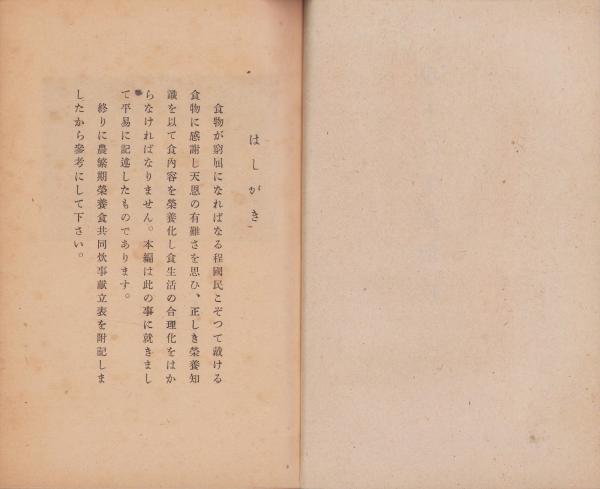 はしがき
食物が窮屈になればなる程國民こぞつて戴ける
食物に感謝し天恩の有難さを思ひ、正しき榮養知
識を以て食內容を榮養化し食生活の合理化をはか
らなければなりません。本編は此の事に就きまし
て平易に記述したものであります。
終りに農繁期榮養食共同炊事献立表を附記しま
したから參考にして下さい。